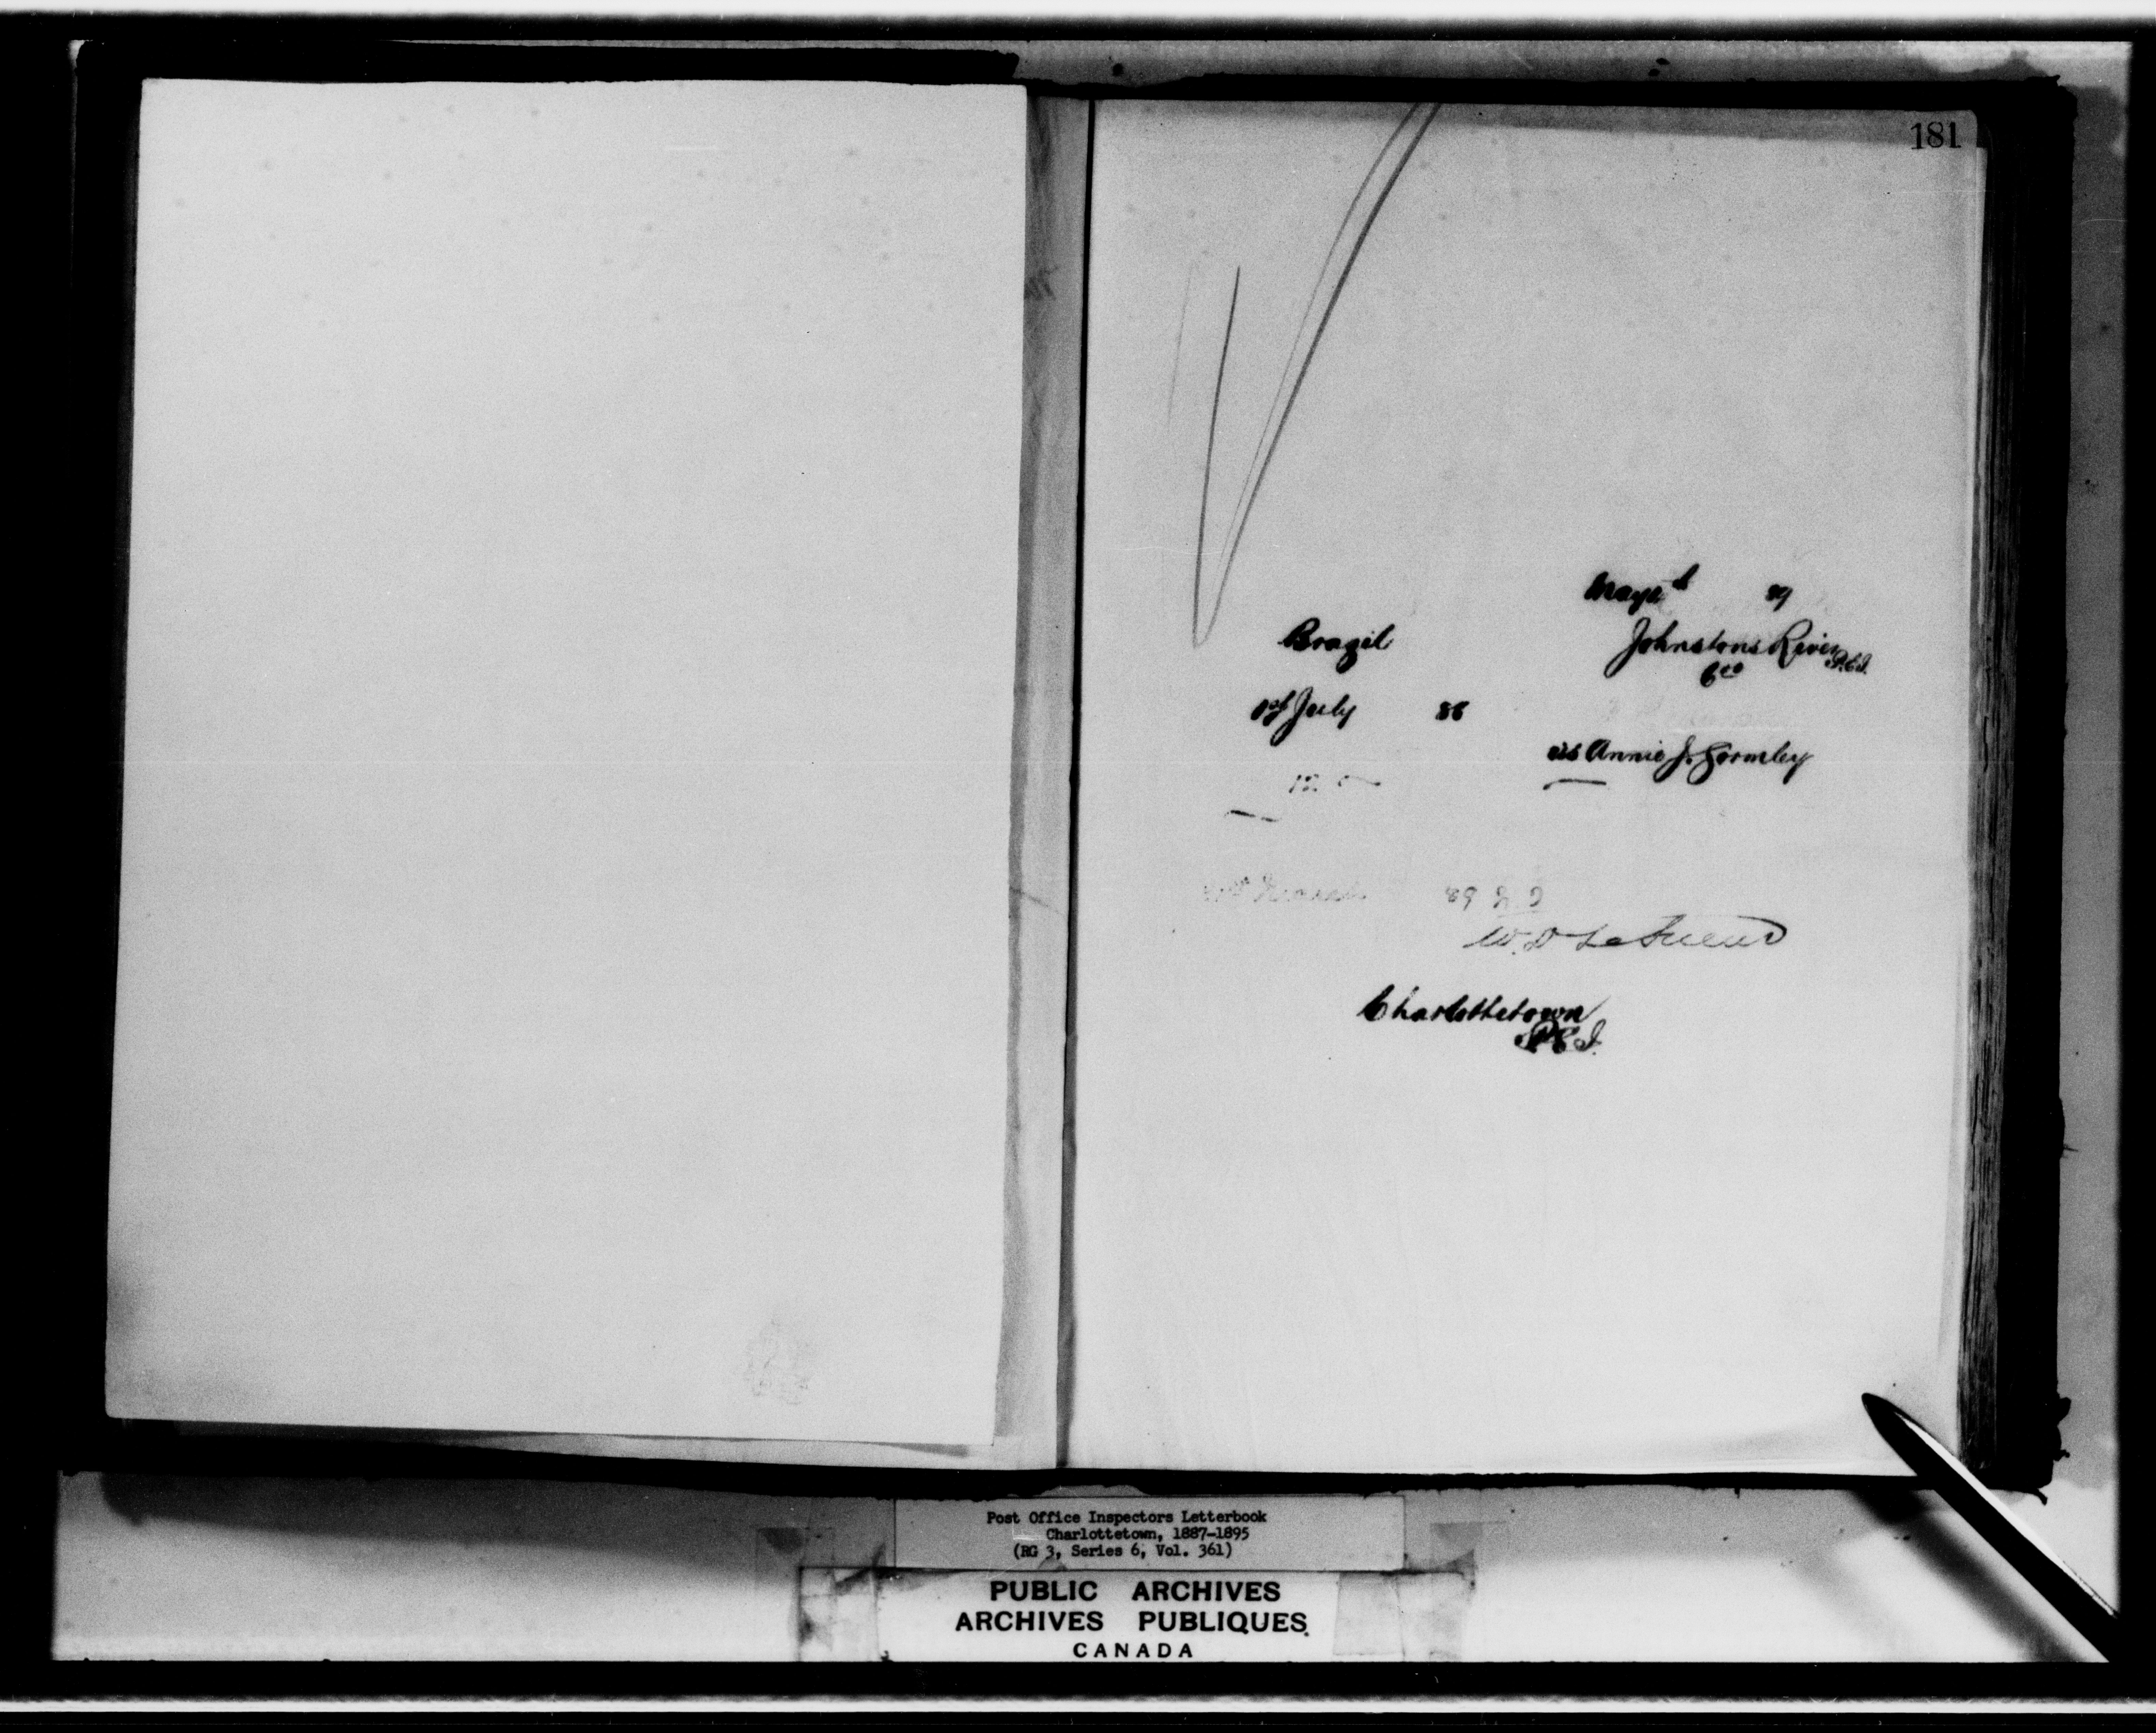 181
89
Brazil
Johnstons River
P.E.I.
Coo
1st July 88
as Annie J. Gormley
12
89
Charlottetown
P.E.I.
Post Office Inspectors Letterbook
Charlottetown, 1887-1895
(RG 3, Series 6, Vol. 361)
PUBLIC ARCHIVES
ARCHIVES PUBLIQUES
CANADA